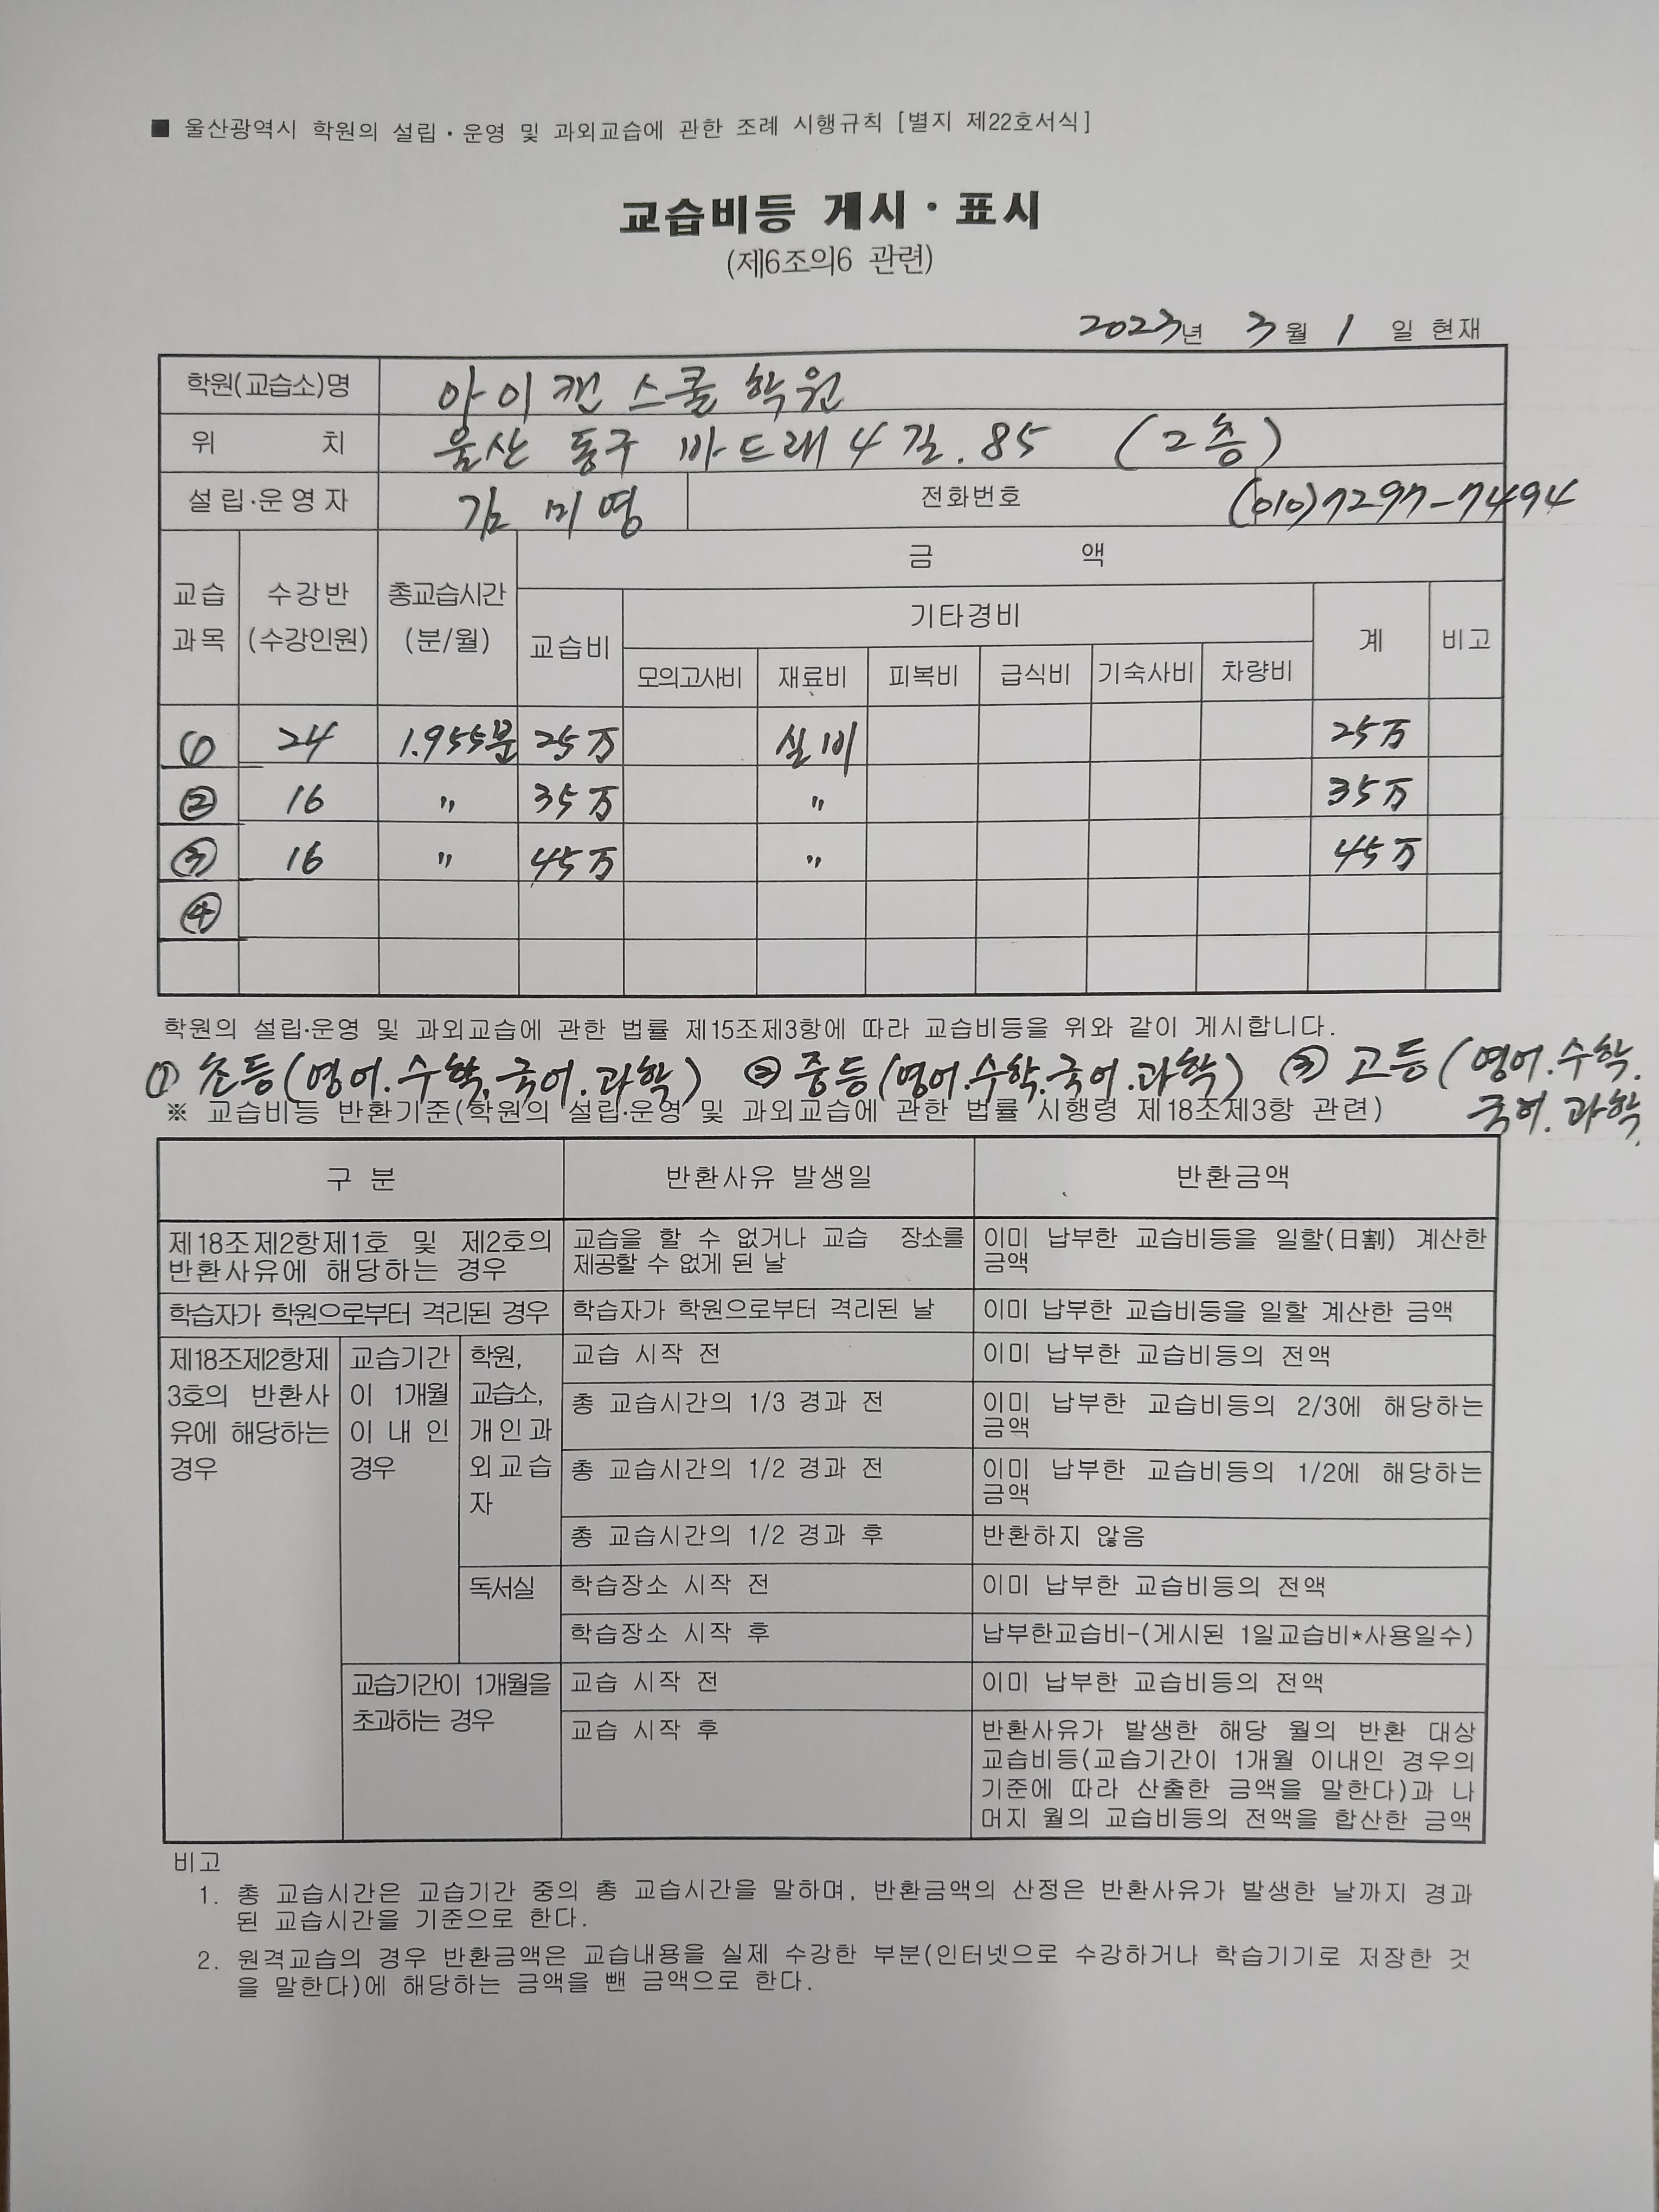 ■ 울산광역시 학원의 설립·운영 및 과외교습에 관한 조례 시행규칙 [별지 제22호서식]
교습비등 게시·표시
(제6조의6 관련)
2023년 3월 1일 현재
학원(교습소)명 아이캔 스쿨 학원
위 치 울산 동구 바드래4길. 85 (2층)
설립·운영자 김미영 전화번호 (010)7297-7494
교습과목 수강반(수강인원) 총교습시간(분/월) 금 액
교습비 기타경비 계 비고
모의고사비 재료비 피복비 급식비 기숙사비 차량비
① 24 1.955분 25万 실비 25万
② 16 〃 35万 〃 35万
③ 16 〃 45万 〃 45万
④
학원의 설립·운영 및 과외교습에 관한 법률 제15조제3항에 따라 교습비등을 위와 같이 게시합니다.
① 초등(영어.수학.국어.과학) ② 중등(영어.수학.국어.과학) ③ 고등(영어.수학.
국어.과학
※ 교습비등 반환기준(학원의 설립·운영 및 과외교습에 관한 법률 시행령 제18조제3항 관련)
구 분 반환사유 발생일 반환금액
제18조제2항제1호 및 제2호의 교습을 할 수 없거나 교습 장소를 이미 납부한 교습비등을 일할(日割) 계산한
반환사유에 해당하는 경우 제공할 수 없게 된 날 금액
학습자가 학원으로부터 격리된 경우 학습자가 학원으로부터 격리된 날 이미 납부한 교습비등을 일할 계산한 금액
제18조제2항제
3호의 반환사
유에 해당하는
경우
교습기간
이 1개월
이 내 인
경우
학원,
교습소,
개인과
외교습
자
교습 시작 전 이미 납부한 교습비등의 전액
총 교습시간의 1/3 경과 전 이미 납부한 교습비등의 2/3에 해당하는
금액
총 교습시간의 1/2 경과 전 이미 납부한 교습비등의 1/2에 해당하는
금액
총 교습시간의 1/2 경과 후 반환하지 않음
독서실 학습장소 시작 전 이미 납부한 교습비등의 전액
학습장소 시작 후 납부한교습비-(게시된 1일교습비*사용일수)
교습기간이 1개월을
초과하는 경우
교습 시작 전 이미 납부한 교습비등의 전액
교습 시작 후 반환사유가 발생한 해당 월의 반환 대상
교습비등(교습기간이 1개월 이내인 경우의
기준에 따라 산출한 금액을 말한다)과 나
머지 월의 교습비등의 전액을 합산한 금액
비고
1. 총 교습시간은 교습기간 중의 총 교습시간을 말하며, 반환금액의 산정은 반환사유가 발생한 날까지 경과
된 교습시간을 기준으로 한다.
2. 원격교습의 경우 반환금액은 교습내용을 실제 수강한 부분(인터넷으로 수강하거나 학습기기로 저장한 것
을 말한다)에 해당하는 금액을 뺀 금액으로 한다.